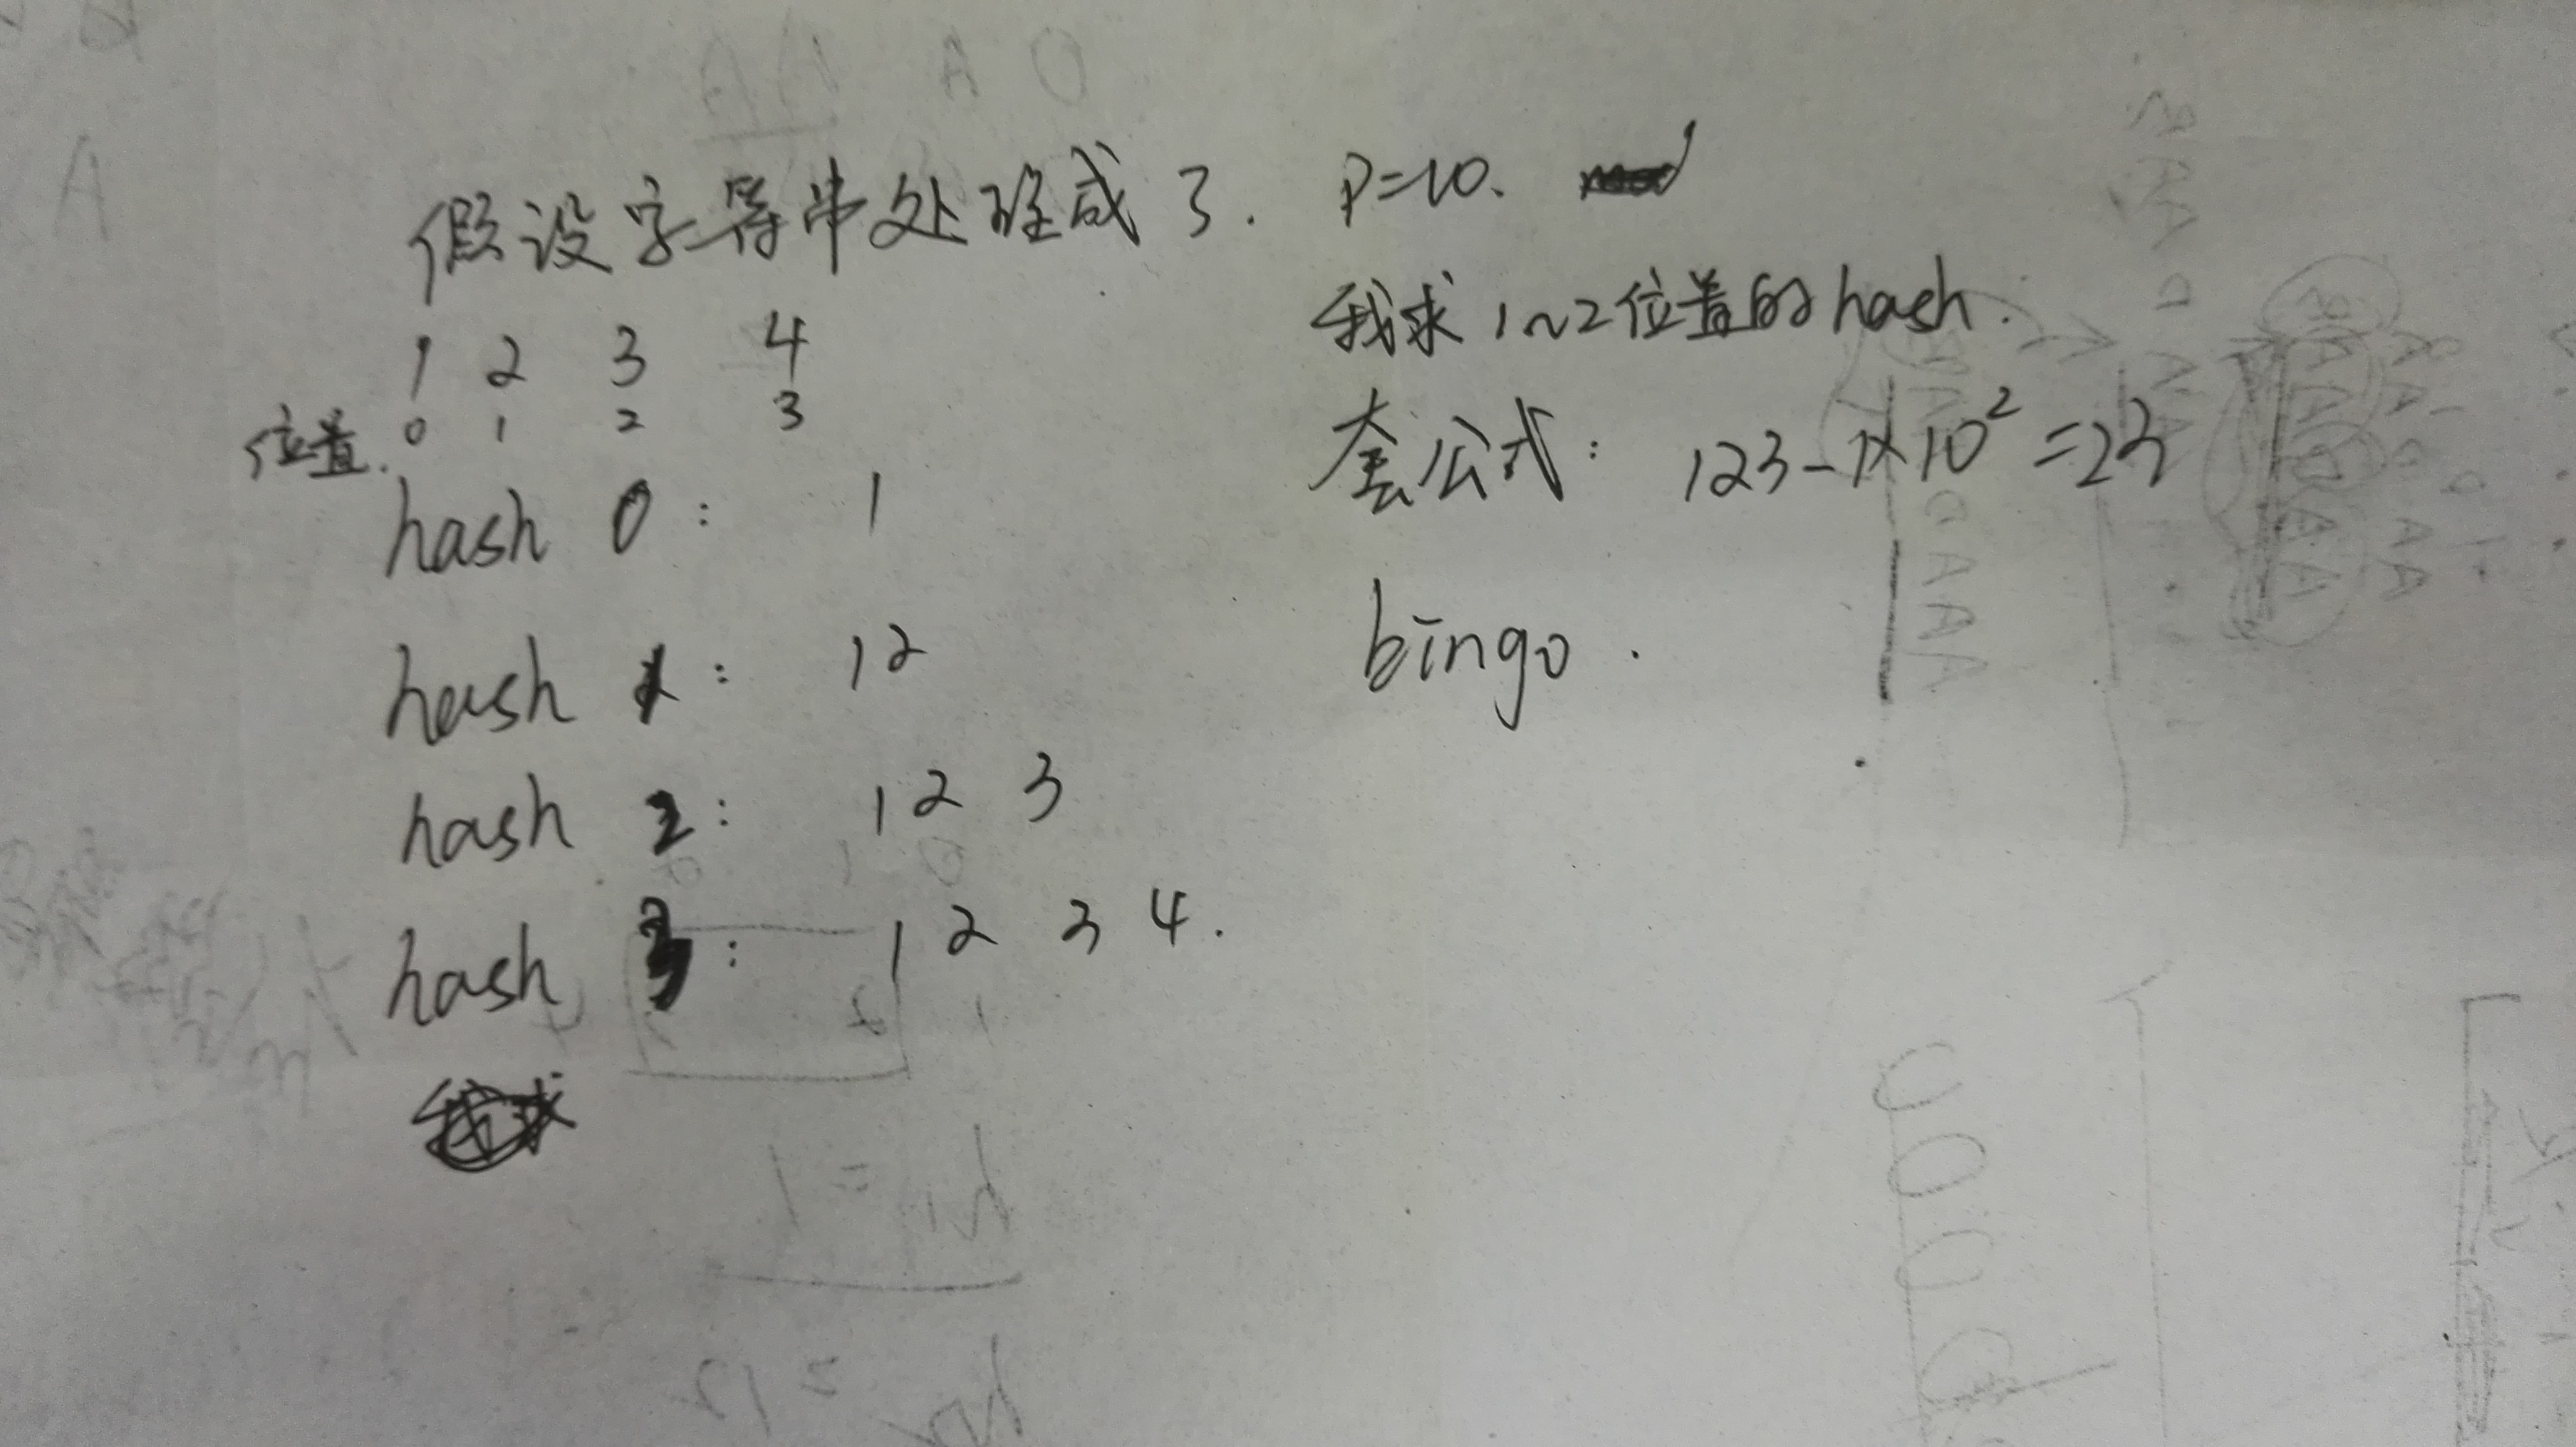 假设字符串处理成了.
1 2 3 4
位置. 0 1 2 3
hash 0: 1
hash 1: 12
hash 2: 1 2 3
hash 3: 1 2 3 4.
P=10.
我求1~2位置的hash.
套公式: 123-1×10²=23
bingo.